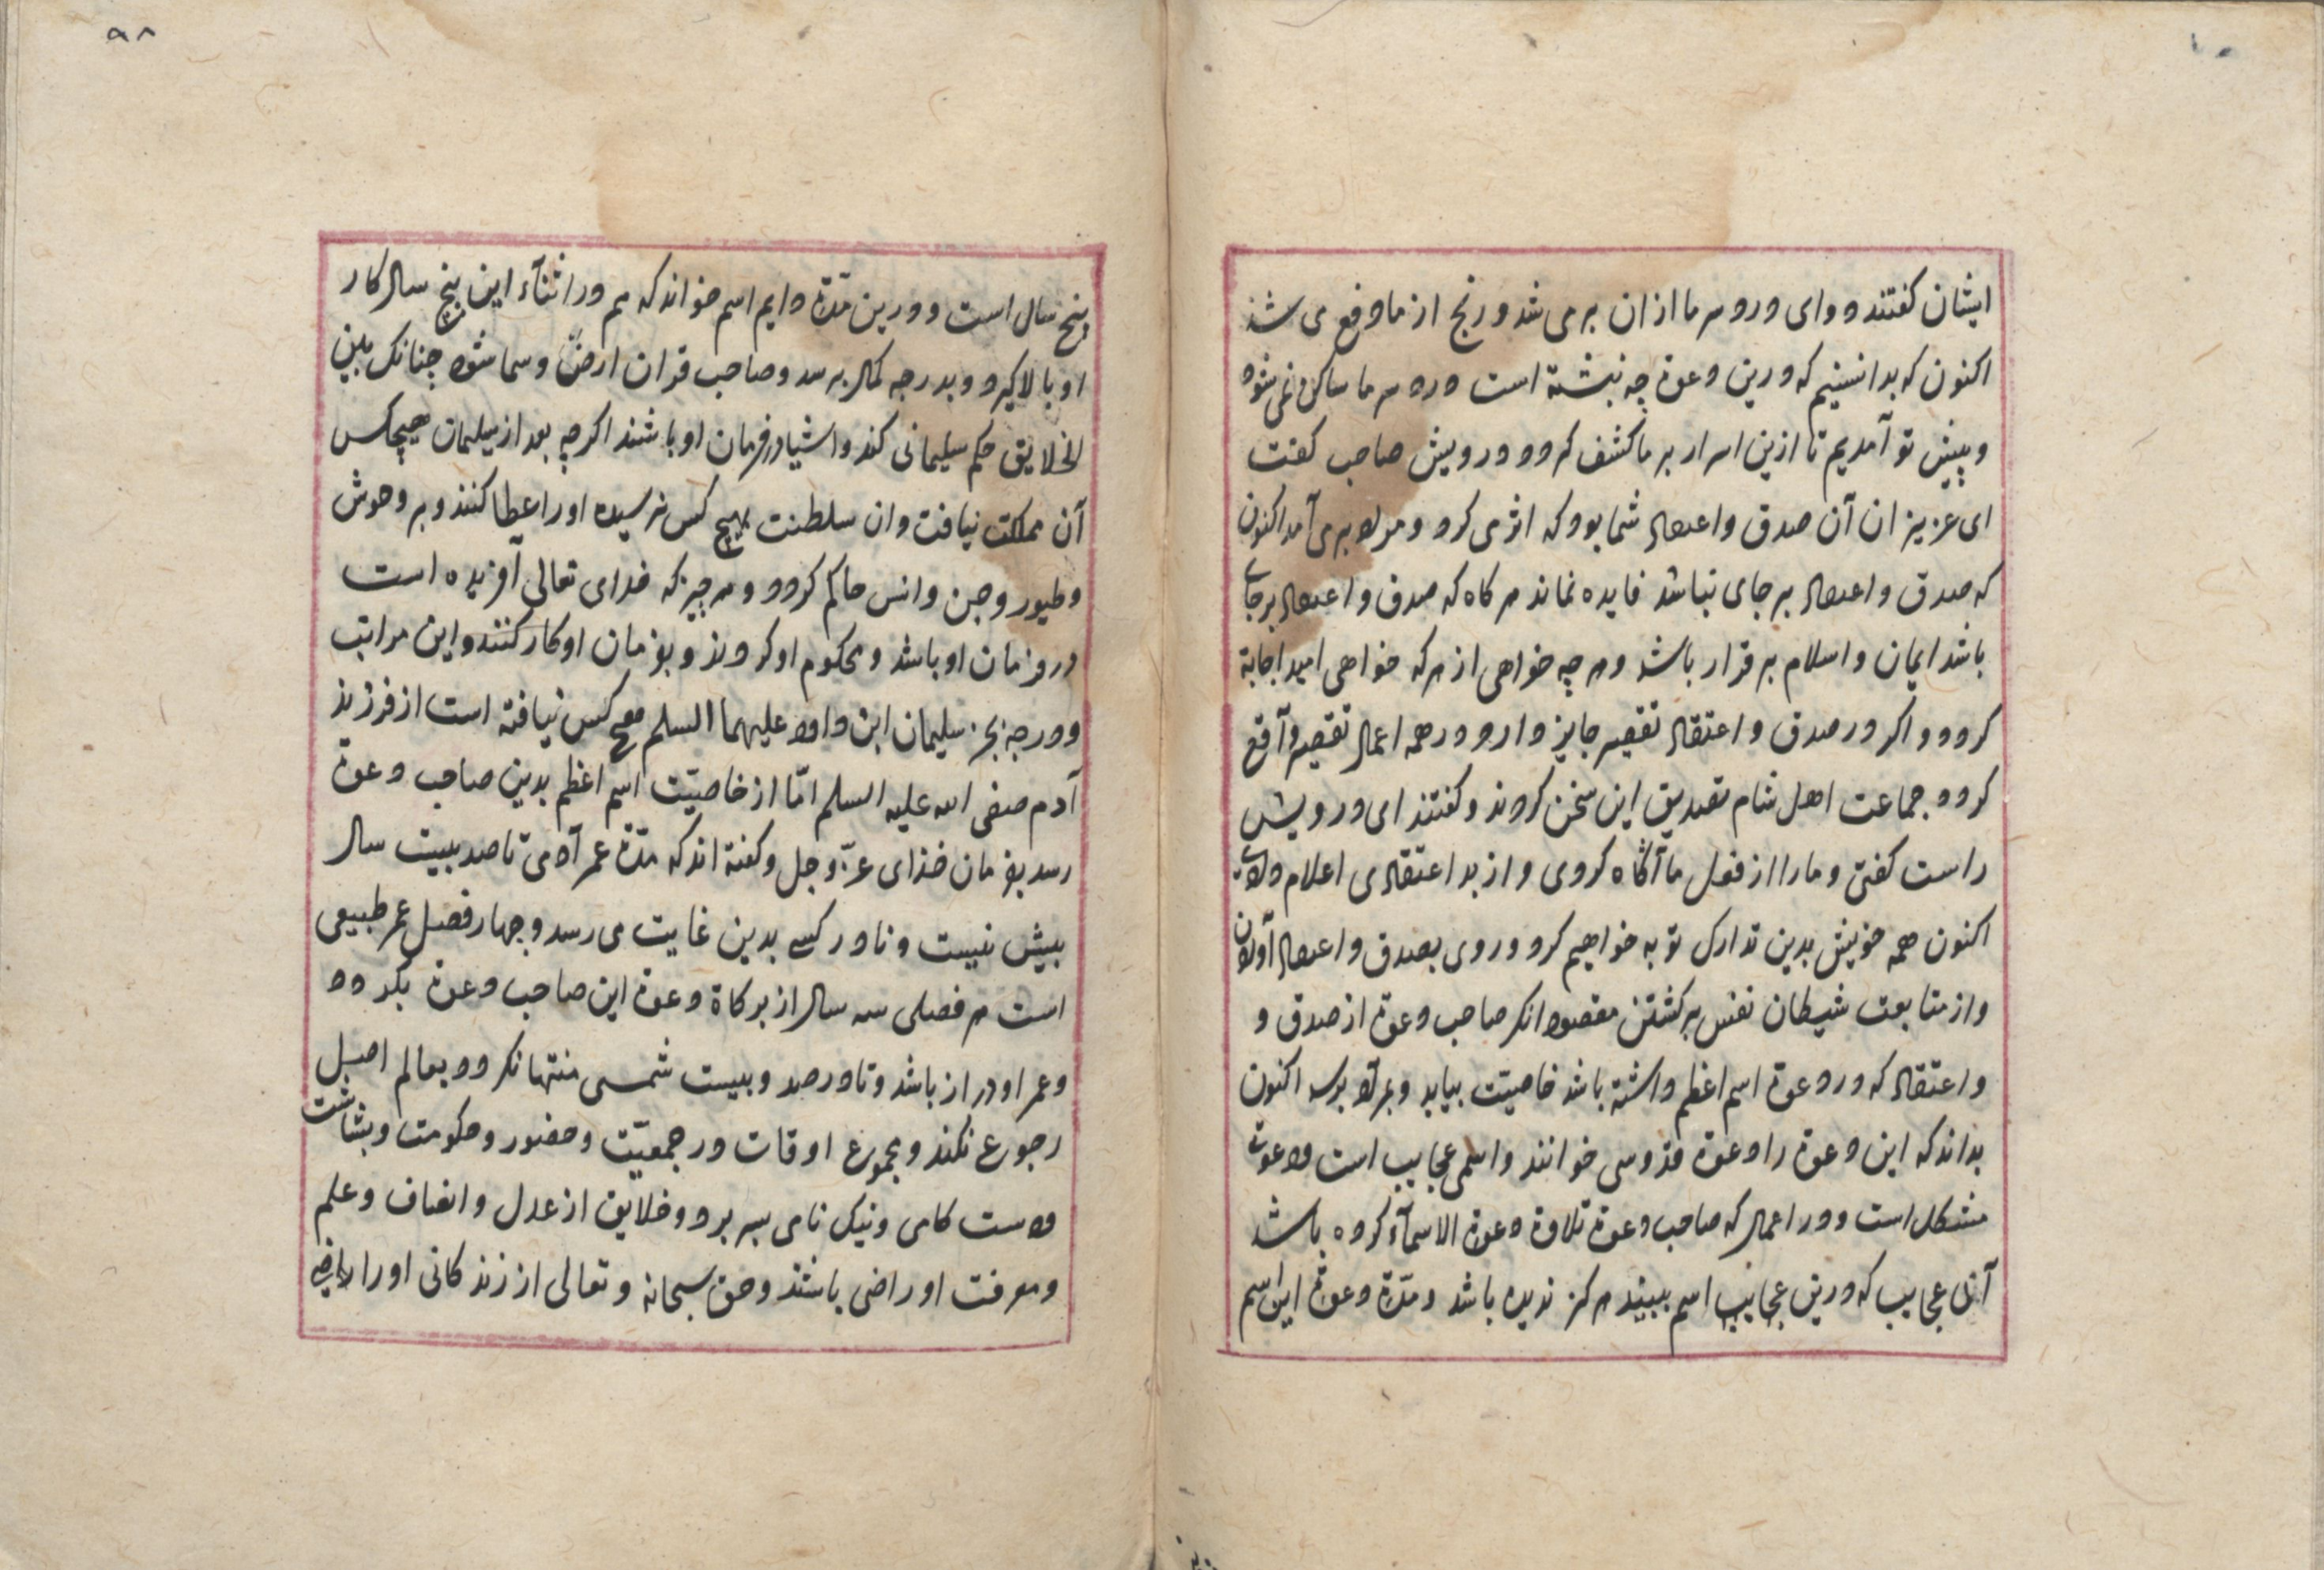 ایشان کفتند دوای درد سر ما ازان بر می شد و رنج از ما دفع می شد
اکنون که بدانستیم که درین دعوة چه نبشته است درد سر ما ساکن نمی شود
و پیش تو آمدیم تا ازین اسرار بر ما کشف کردد درویش صاحب کفت
ای عزیزان آن صدق و اعتقاد شما بود که اثر می کرد و مراد بر می آمد اکنون
که صدق و اعتقاد بر جای نباشد فایده نماند هر کاه که صدق و اعتقاد بر جای
باشد ایمان و اسلام بر قرار باشد و هر چه خواهی از هر که خواهی امید اجابة
کردد و اکر در صدق و اعتقاد تقصیر جایز دارد در همه اعمال تقصیر واقع
کردد جماعت اهل شام تصدیق این سخن کردند و کفتند ای درویش
راست کفتی و ما را از فعل ما آکاه کردی و از بد اعتقادی اعلام دادی
اکنون همه خویش بدین تدارک توبه خواهیم کرد و روی بصدق و اعتقاد آوردن
و از متابعت شیطان نفس بر کشتن مقصود انکر صاحب دعوة از صدق و
و اعتقاد که در دعوة اسم اعظم داشته باشد خاصیّت بیابد و بمراد برسد اکنون
بداند که این دعوة را دعوة قدّوسی خوانند و اسمی عجایب است و دعوت
مشکل است و در اعمال که صاحب دعوة تلاوة دعوة الاسمآء کرده باشد
آن عجایب که درین عجایب اسم ببیند هر کز ندیده باشد و مدّة دعوة این اسم
۹۸
پنج سال است و درین مدّة دایم اسم خواند که هم در اثنآء این پنج سال کار
او بالا کیرد و بدرجه کمال برسد و صاحب قران ارض و سما شود چنانک بین
الخلایق حکم سلیمانی کند و اشیا در فرمان او باشند اکر چه بعد از سلیمان هیچکس
آن مملکت نیافت و ان سلطنت بهیچ کس نرسیده او را عطا کنند و بر وحوش
و طیور و جن و انس حاکم کردد و هر چیز که خدای تعالی آفریده است
در فرمان او باشد و محکوم او کردند و بفرمان او کار کنند و این مراتب
و درجه بجز سلیمان ابن داود علیهما السلم هیچ کس نیافته است از فرزند
آدم صفی الله علیه السلم امّا از خاصیّت اسم اعظم بدین صاحب دعوة
رسد بفرمان خدای عزّ و جل و کفته اند که مدّة عمر آدمی تا صد بیست سال
بیش نیست و نادر کسی بدین غایت می رسد و چهار فصل عمر طبیعی
است هر فصلی سه سال از برکاة دعوة این صاحب دعوة بکردد
و عمر او دراز باشد و تا در صد و بیست شمسی منتها نکردد بعالم اصل
رجوع نکند و مجموع اوقات در جمعیّت و حضور و حکومت و بشاشت
دوست کامی و نیک نامی بسر برد و خلایق از عدل و انصاف و علم
و معرفت او راضی باشند و حق سبحانه و تعالی از زندکانی او را راضی